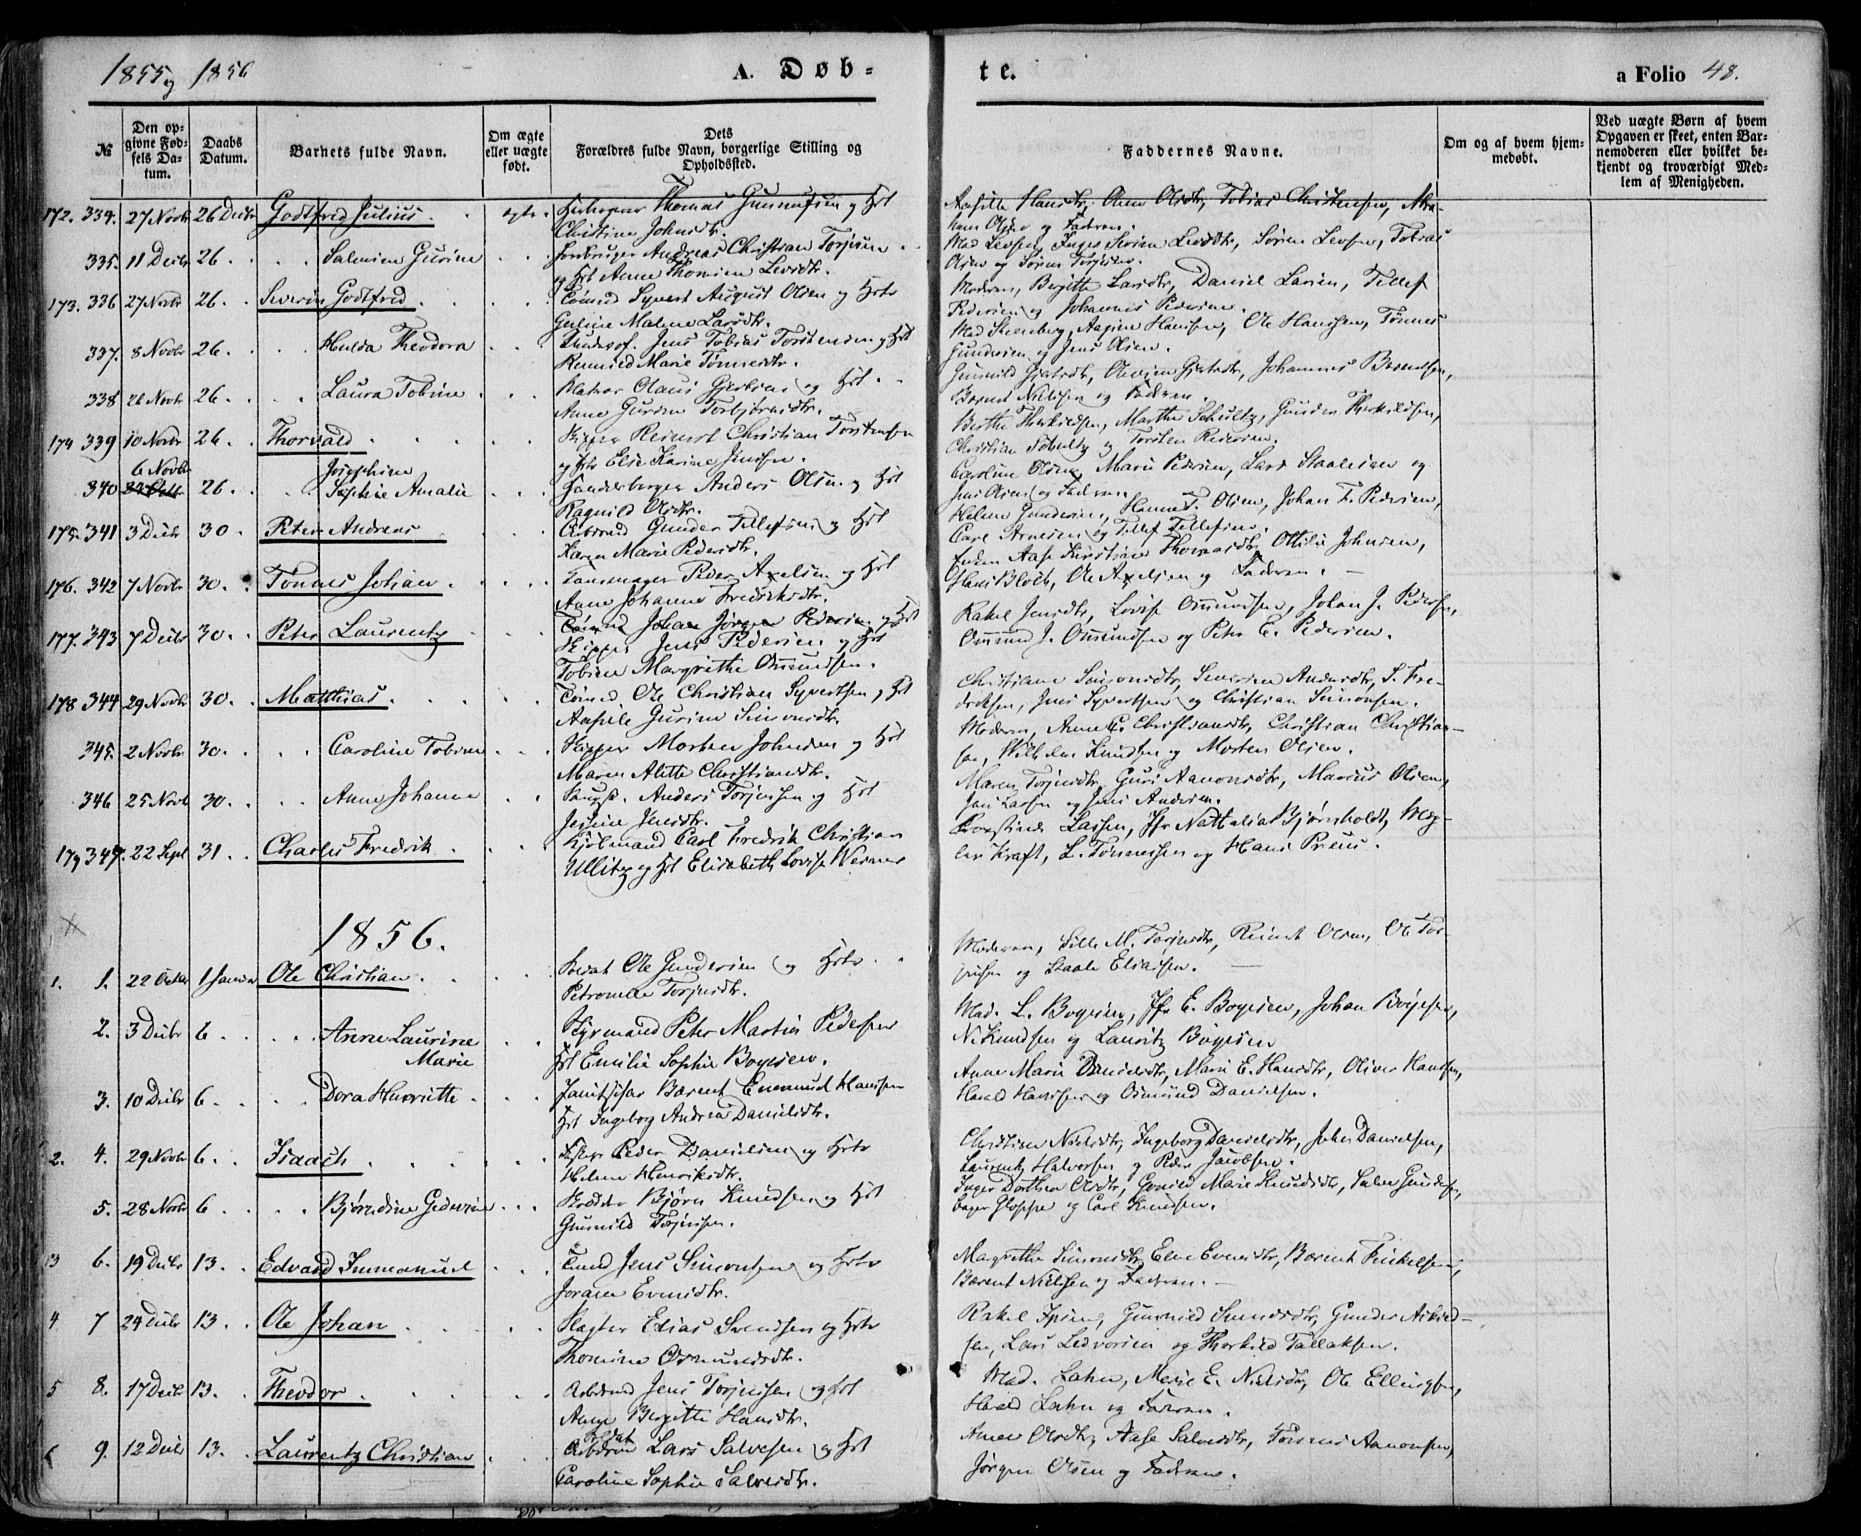 1855 og 1856
A. Døb-
te.
a Folio 48.
№
Den op-
givne Fød-
sels Da-
tum.
Daabs
Datum.
Barnets fulde Navn.
Om ægte
eller uægte
født.
Dets
Forældres fulde Navn, borgerlige Stilling og
Opholdssted.
Faddernes Navne.
Om og af hvem hjem-
medøbt.
Ved uægte Børn af hvem
Opgaven er skeet, enten Bar-
nemoderen eller hvilket be-
kjendt og troværdigt Med-
lem af Menigheden.
172. 334. 27 Novbr 26 Decbr Godtfred Julius. ægte. Thomas Gunnufsen og Hst
Christine Johnsdr.
Aasille Hansdtr, Anne Olsdtr, Tobias Christensen,
og Faderen
335. 11 Decbr 26. Salmine Gurine Andreas Christian Torjusen
og Hst Anne Thomine Levsdtr.
Mad Levsen, Inger Severine Levsdtr, Søren Levsen, Tobias
Olsen og Søren Torjusen.
173. 336 27 Novbr 26. Severin Godtfred Tømmd Syvert August Olsen og Hstr
Guline Malene Larsdtr.
Moderen, Birgitte Larsdtr, Daniel Larsen, Tellef
Pedersen og Johannes Pedersen.
337. 8 Novbr 26. Hulda Theodora Jens Tobias Torstensen og Hst
Marie Tønnesdtr.
Mad Stenberg, Aasine Hansen, Ole Hansen, Tønnes
Gundersen og Jens Olsen.
338 22 Novbr 26. Laura Tobine Matros Olaus Gjertsen og Hst
Anne Gurine Torbjørnsdtr.
Gunnild Gjertsdtr, Olevine Gjertsdtr, Johannes Berentsen,
Bærent Nielsen og Faderen.
174 339 10 Novbr 26. Thorvald Skipper Reinert Christian Torstensen
og Hst Else Karine Jensen.
Berthe Therkildsen, Marthe Schultz, Gunder Therkildsen,
Christian Schultz og Torsten Pedersen.
340 6 Novbr 26. Josephine
Sophie Amalie Anders Olsen og Hst
Ragnild Olsdtr.
Caroline Olsen, Marie Pedersen, Lars Staalesen og
Jens Olsen og Faderen.
175. 341 3 Decbr 30. Peter Andreas Arbmd Gunder Tellefsen og Hst
Karen Marie Pedersdtr.
Helene Gundersen, Hanne T. Olsen, Johan F. Pedersen,
Carl Arnesen og Tellef Tellefsen.
176. 342 7 Novbr 30. Tønnes Johan. Peder Axelsen og Hst
Anne Johanne Fredriksdtr.
Aase Kirstine Thomasdtr, Ottilie Johnsen,
Hans Bloch, Ole Axelsen og Faderen.
177. 343 7 Decbr 30. Peter Laurentz Skipper Jens Pedersen og Hst
Tobine Margrethe Omundsen.
Rakel Jensdtr, Lovise Omundsen, Johan J. Pedersen,
Omund J. Omundsen og Peter E. Pedersen.
178 344 29 Novbr 30. Matthias. Tømmd Ole Christian Syvertsen og Hst
Aasille Gurine Simonsdtr.
Christiane Simonsdtr, Severine Andersdtr, S. Fre-
driksen, Jens Syvertsen og Christian Simonsen.
345. 2 Novbr 30. Caroline Tobine Skipper Morten Johnsen og Hst
Maren Alette Christiansdtr.
Moderen, Anne C. Christiansdtr, Christian Christian-
sen, Wilhelm Knudsen og Morten Olsen.
346 25 Novbr 30. Anne Johanne Anders Torjussen og Hst
Jensine Jensdtr.
Maren Torjusdtr, Guri Aanonsdtr, Marcus Olsen,
Jens Larsen og Jens Andersen.
179 347. 22 Sept 31. Charles Fredrik. Kjøbmand Carl Fredrik Christian
Ullitz og Hst Elisabeth Lovise Werner
Lassen, Jfr Nathalia Bjørnholdt,
Kraft, L. Tønnessen og Hans Preus.
1856.
1. 1. 22 Octbr 1 Januar Ole Christian. Soldat Ole Gundersen og Hstr
Petronelle Torjusdtr.
Moderen, Sille M. Torjusdtr, Reinert Olsen, Ole Tor-
jussen og Staale Eliassen.
2. 3 Decbr 6. Anne Laurine
Marie Styrmand Peter Martin Pedersen
Hst Emilie Sophie Boyesen.
Mad. L. Boyesen, Jfr E. Boyesen, Johan Boyesen,
N. Knudsen og Lauritz Boyesen
3. 10 Decbr 6. Dora Henriette Bærent Evenmud Hansen
Hst Ingeborg Andrea Danielsdtr.
Anne Marie Danielsdtr, Marie E. Hansdtr, Oliver Hansen,
Harald Hansen og Osmund Danielsen.
2. 4. 29 Novbr 6. Isaach Peder Danielsen og Hstr
Helene Henriksdtr.
Christine Nielsdtr, Ingeborg Danielsdtr, John Danielsen,
Laurentz Halvorsen og Peder Jacobsen.
5. 28 Novbr 6 Bjørndine Gedevine Bjørn Knudsen og Hst
Gunnild Torjussen.
Inger Dorthea Olsdtr, Gunild Marie Knudsdtr, Salve Gundersen,
Gloppe og Carl Knudsen.
3 6. 19 Decbr 13. Edvard Immanuel Tmd Jens Simonsen og Hstr
Joran Evensdtr.
Margrethe Simonsdtr, Else Evensdtr, Bærent Terkelsen,
Bærent Nielsen og Faderen.
4 7 24 Decbr 13. Ole Johan Slagter Elias Svendsen og Hstr
Thomine Osmundsdtr.
Rakel Gunnild Svendsdtr, Gunder Askild-
sen, Lars Ledvorsen og Therkild Tallaksen.
5 8. 17 Decbr 13. Theodor Arbmd Jens Torjussen og Hst
Anne Birgitte Hansdtr.
Mad. Lahn, Marie E. Nielsdtr, Ole Ellingsen,
Harald Lahn og Faderen.
6 9. 12 Decbr 13. Laurentz Christian Soldat Lars Salvesen og Hst
Caroline Sophie Salvesdtr.
Anne Olsdtr, Aase Salvesdtr, Tønnes Aanonsen,
Jørgen Olsen og Faderen.